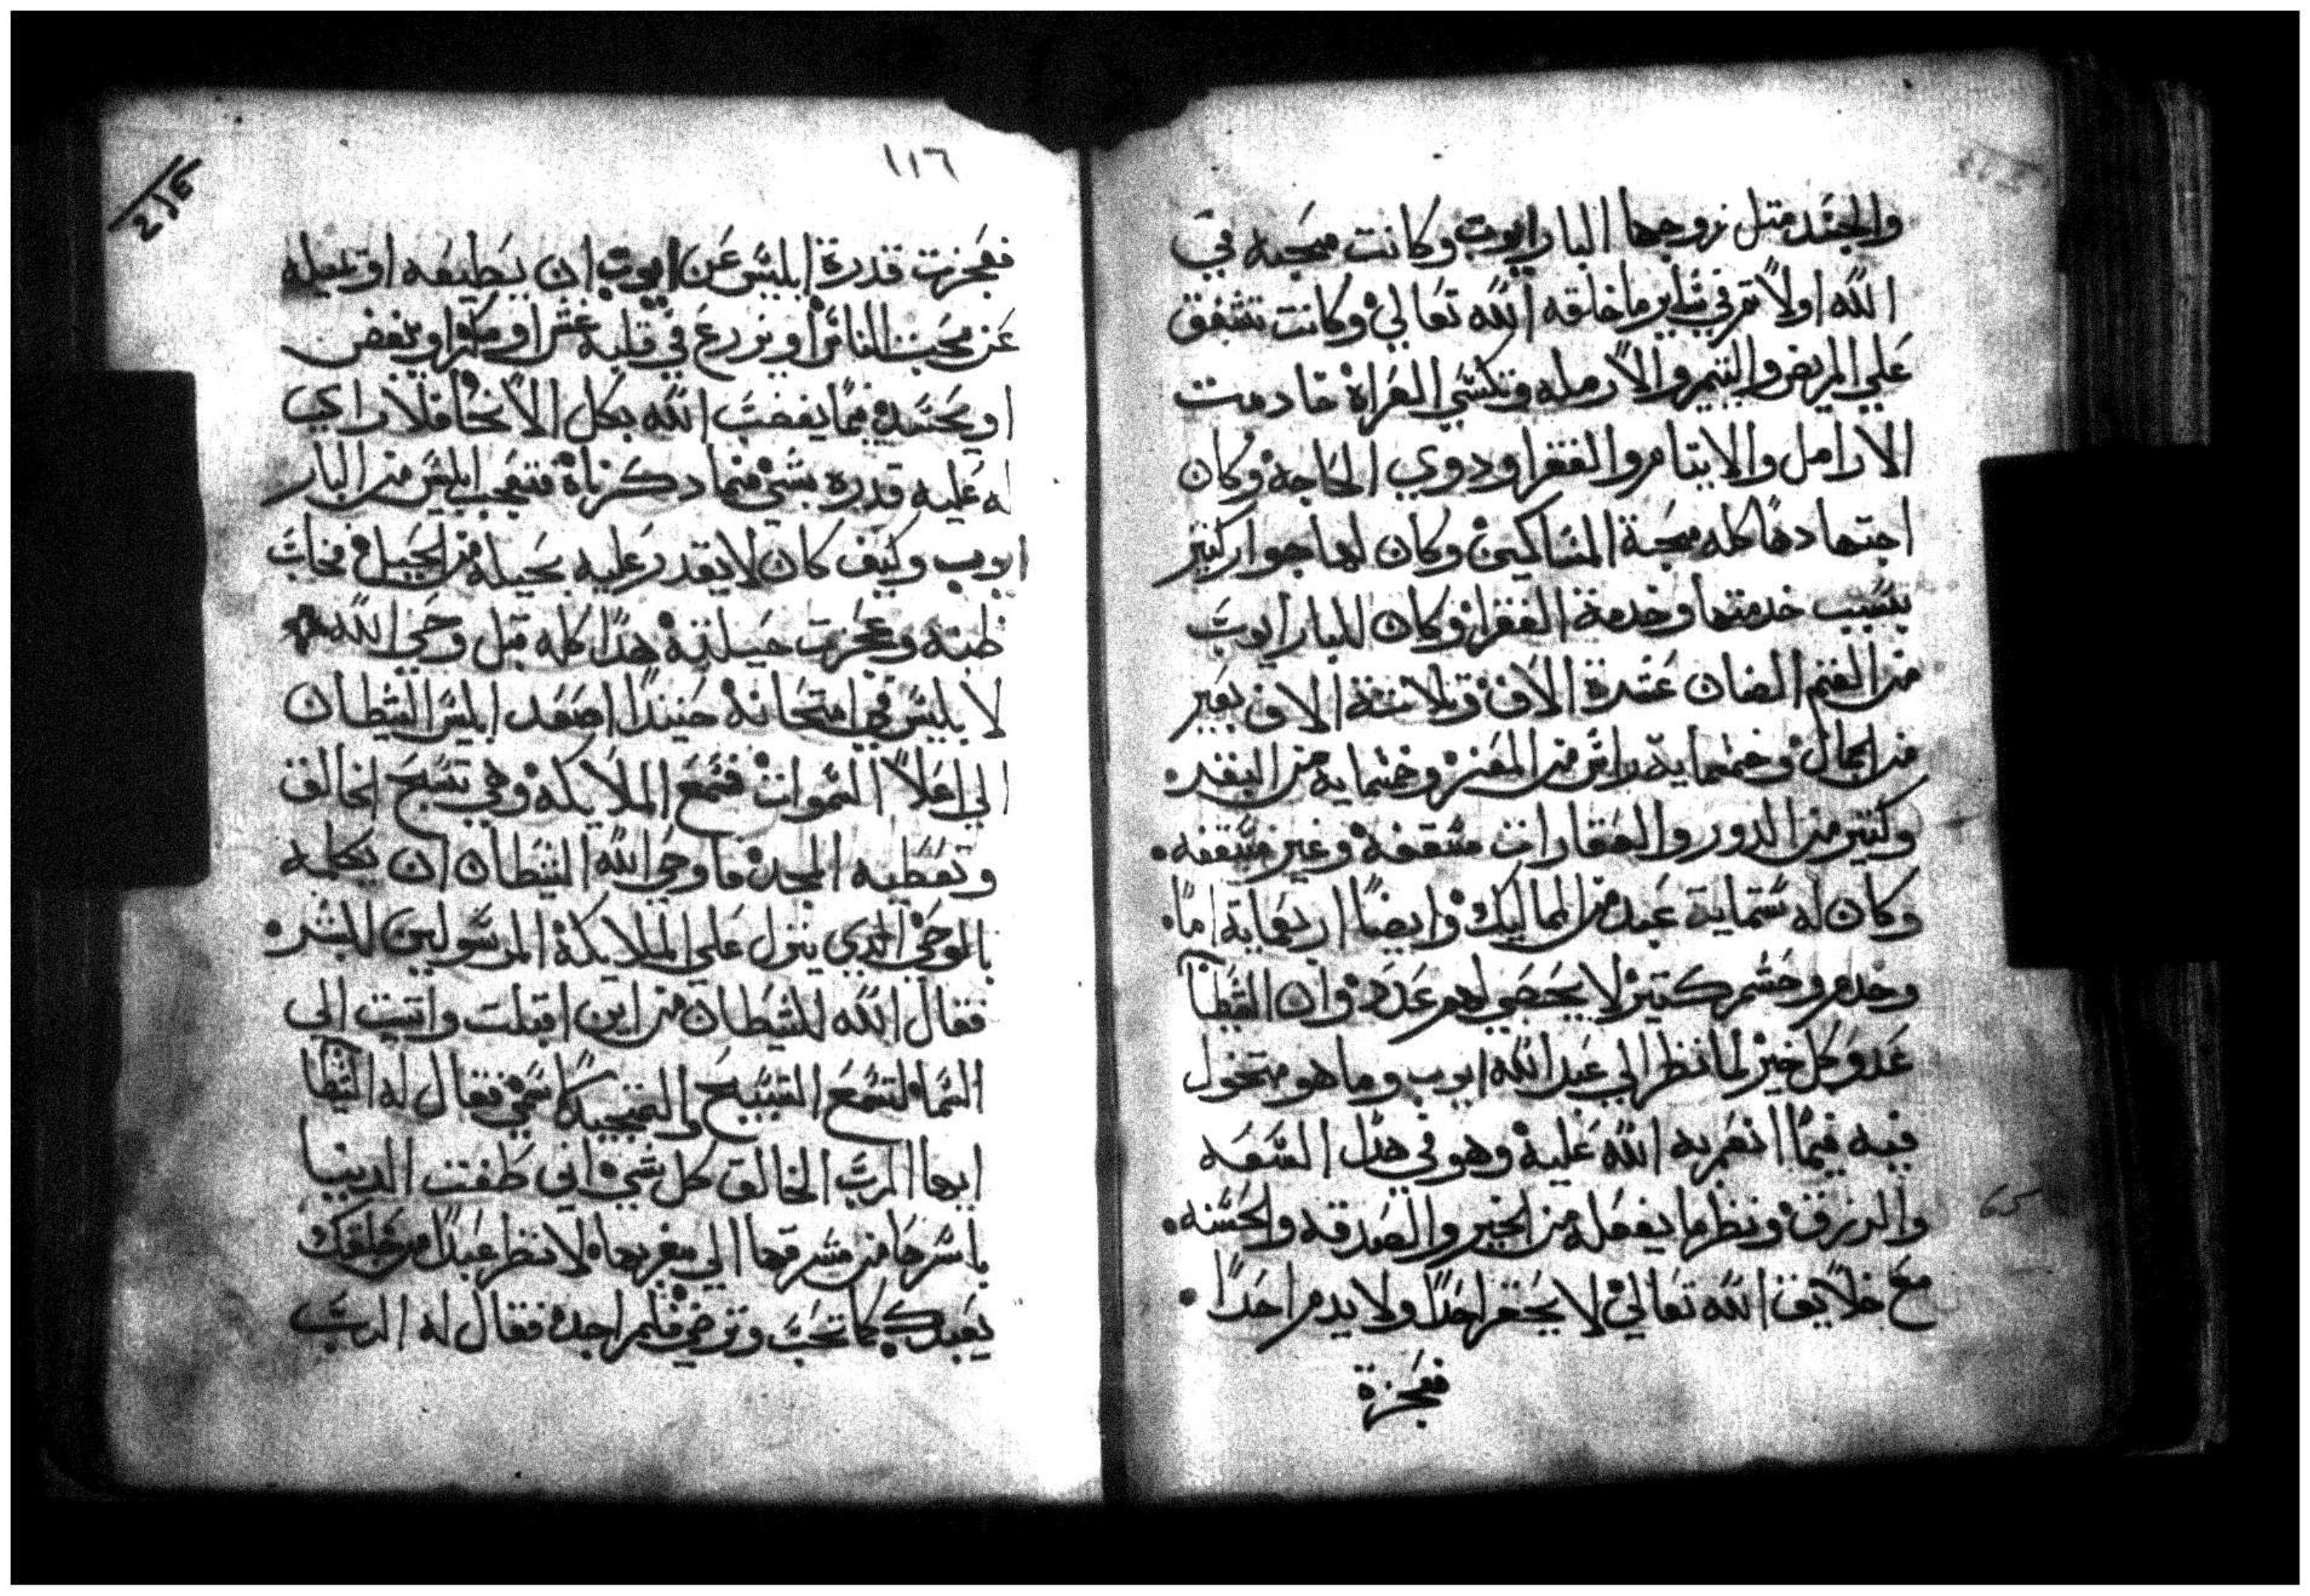 والجند متل زوجها البار ايوب وكانت محبه في
الله اولاً تم في ساير ما خلقه الله تعالي وكانت تشفق
علي المريض واليتيم والارمله وتكسي العراة خادمت
الارامل والايتام والفقرا ودوي الحاجة وكان
اجتهادها كله محبة المساكين وكان لها جوار كتير
بسبب خدمتها وخدمة الفقرا وكان للبار ايوب
من الغنم الضان عشرة الاف وتلاتة الاف بعير
من الجمال وخمسماية راس من المعز وخمسماية من البقر
وكتير من الدور والعقارات مسقفه وغير مسقفه
وكان له ستماية عبد من المماليك وايضاً اربعماية امًا
وخدم وحشم كتير لا يحصي لهم عدد وان الشيطان
عدو كل خير لما نظر الي عبد الله ايوب وما هو متخول
فيه فيما انعم به الله عليه وهو في هدا السعه
والرزق ونظر ما يفعله من الخير والصدقه والحسنه
مع خلايق الله تعالي لا يحقر احداً ولا يدم احداً
فعجزة
١١٦
فعجزت قدرة ابليس عن ايوب ان يطيعه او يميله
عن محبت الناس او يزرع في قلبه غش او مكر او بغض
او يحسده مما يغضب الله بكل الانحا فلا راي
له عليه قدره بشي فيما دكرناة فتعجب ابليس من البار
ايوب وكيف كان لا يقدر عليه بحيله من الحيل فخاب
ظنه وعجزت حيلته هدا كله قبل وحي الله
لابليس في امتحانه حينيدًا صعد ابليس الشيطان
الي اعلا السموات فسمع الملايكه وهي تسبح الخالق
وتعطيه المجد فاوحي الله الشيطان ان يكلمه
بالوحي الدي ينزل علي الملايكة المرسولين للبشر
فقال الله للشيطان من اين اقبلت واتيت الى
السما لتسمع التسبيح والتمجيد لاسمي فقال له الشيطان
ايها الرب الخالق كل شي اني طفت الدنيا
باسرها من مشرقها الي مغربها لا نظر عبداً من خلقك
يعبدك كما تحب وترضي فلم اجد فقال له الرب